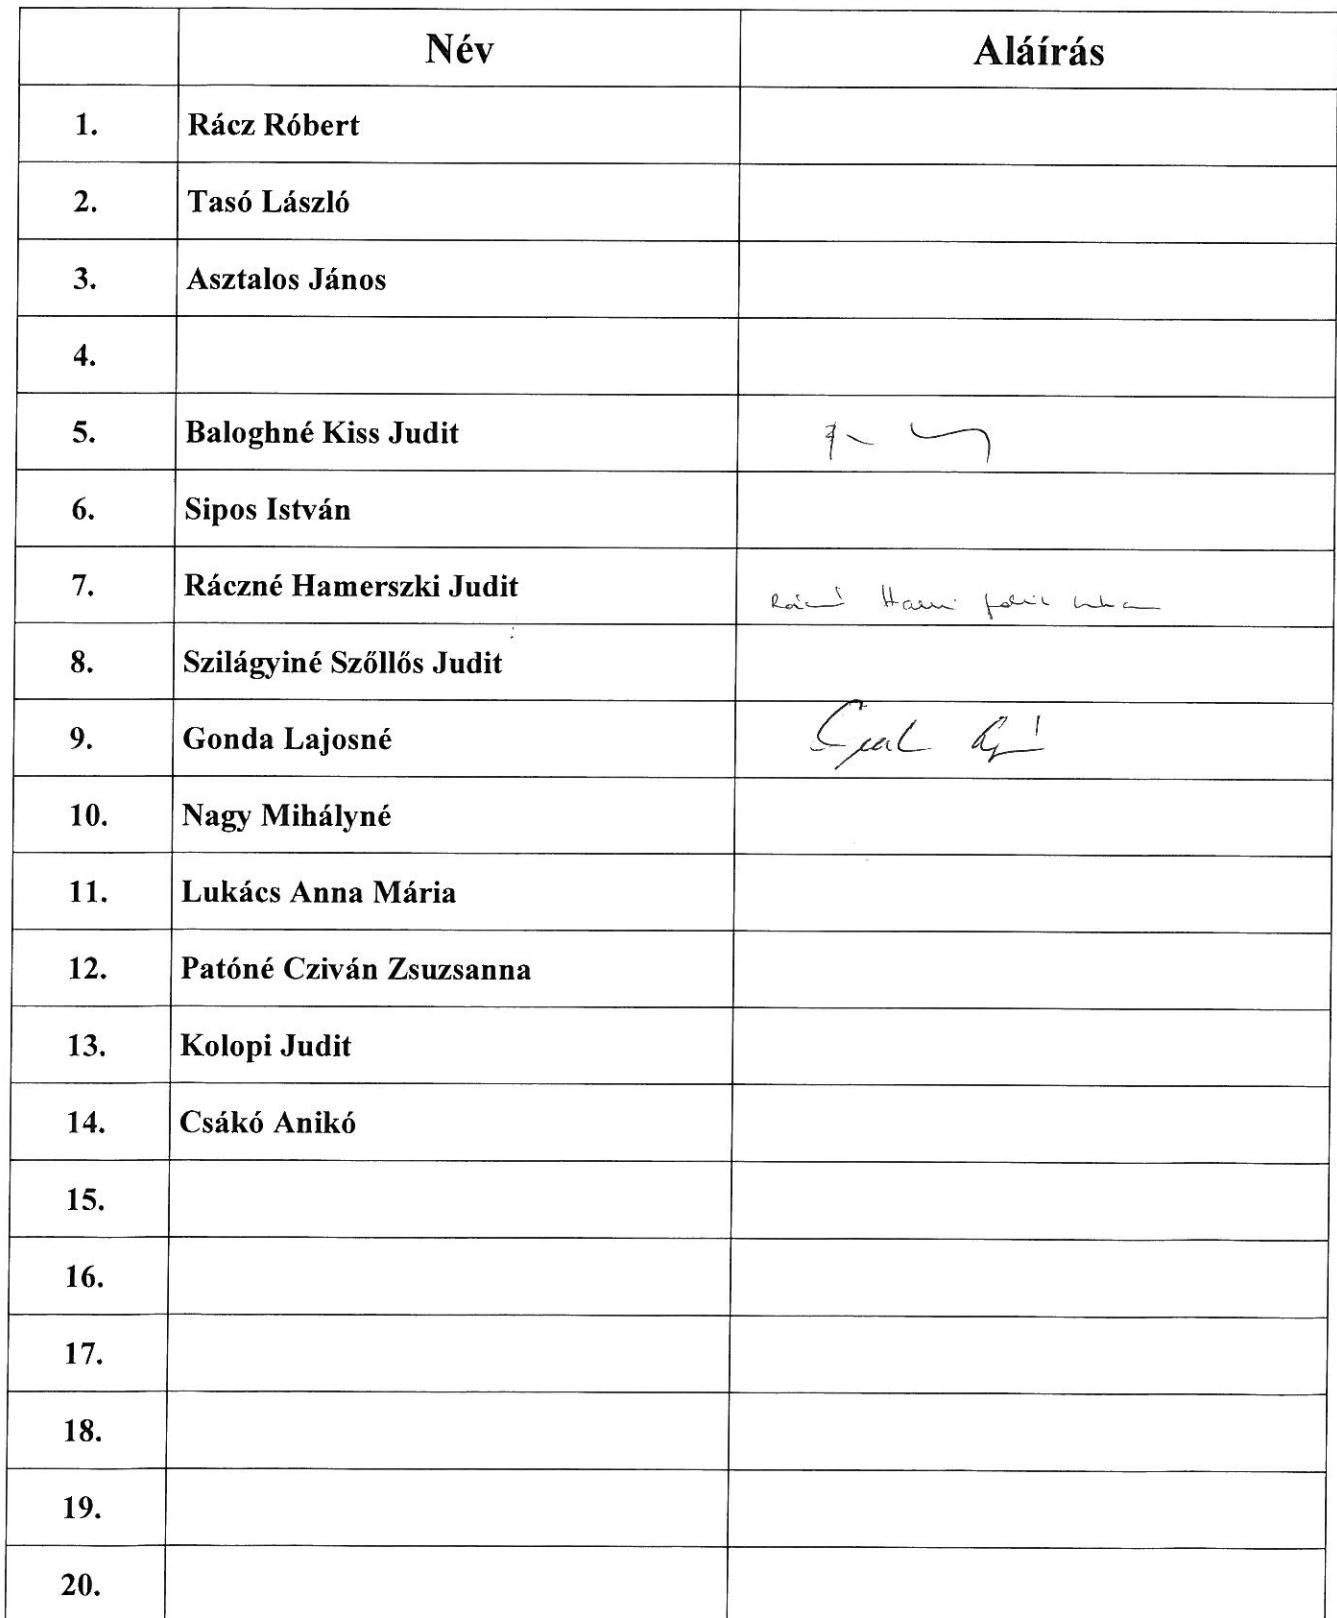 Név Aláírás
1. Rácz Róbert
2. Tasó László
3. Asztalos János
4.
5. Baloghné Kiss Judit
6. Sipos István
7. Ráczné Hamerszki Judit
8. Szilágyiné Szőllős Judit
9. Gonda Lajosné
10. Nagy Mihályné
11. Lukács Anna Mária
12. Patóné Cziván Zsuzsanna
13. Kolopi Judit
14. Csákó Anikó
15.
16.
17.
18.
19.
20.